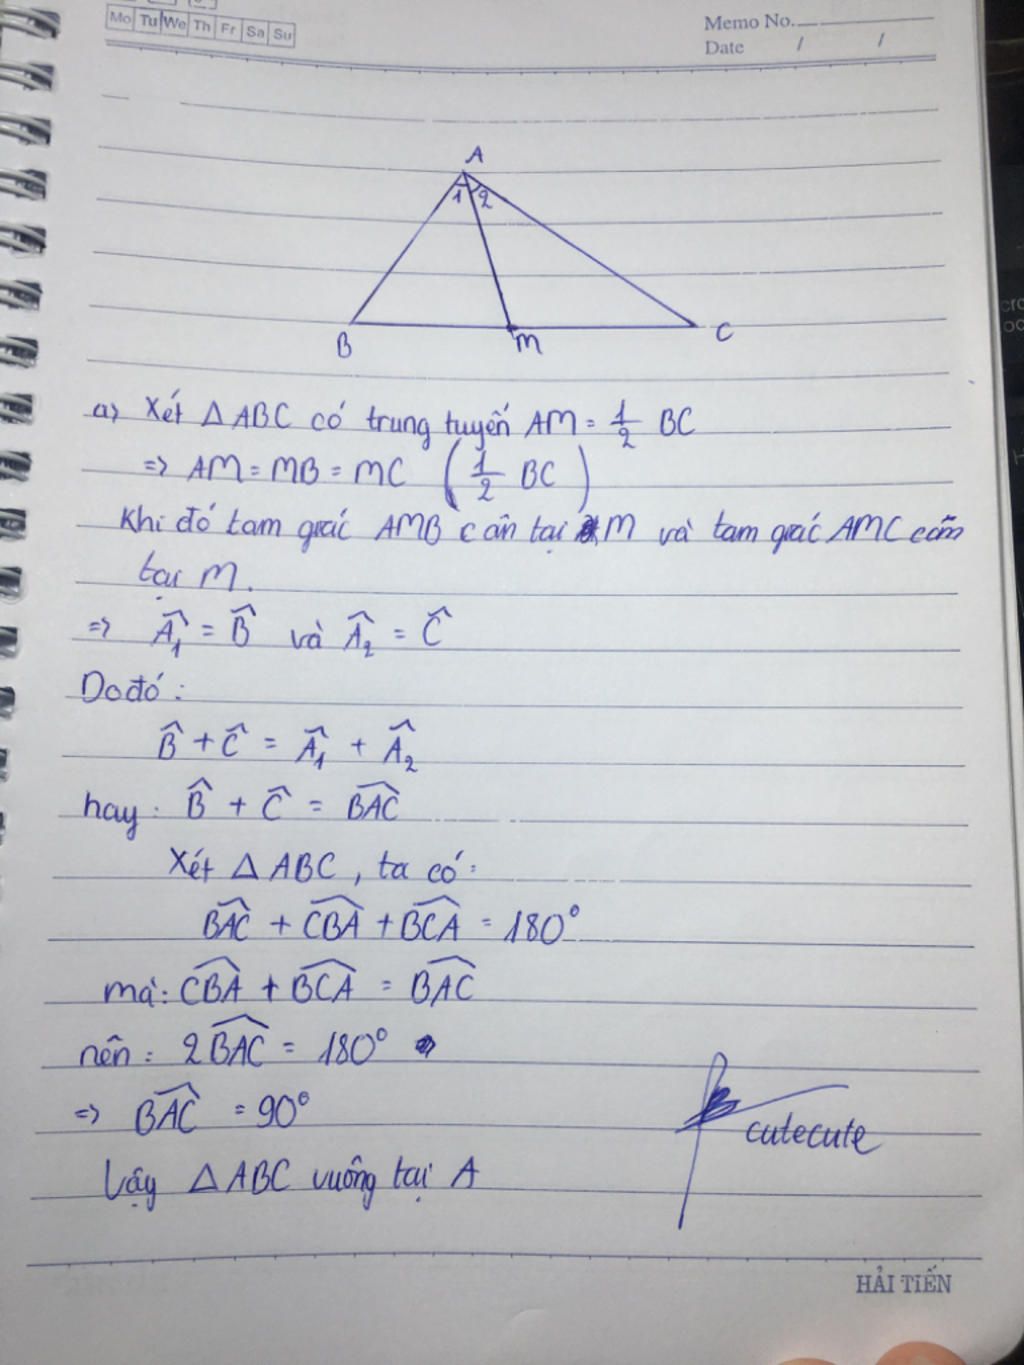 Mo Tu We Th Fr Sa Su
Memo No.
Date / /
A
1 2
B M C
a) Xét △ABC có trung tuyến AM = 1/2 BC
=> AM = MB = MC (1/2 BC)
Khi đó tam giác AMB cân tại M và tam giác AMC cân
tại M.
=> Â₁ = B̂ và Â₂ = Ĉ
Do đó :
B̂ + Ĉ = Â₁ + Â₂
hay : B̂ + Ĉ = \widehat{BAC}
Xét △ABC , ta có :
\widehat{BAC} + \widehat{CBA} + \widehat{BCA} = 180°
mà : \widehat{CBA} + \widehat{BCA} = \widehat{BAC}
nên : 2\widehat{BAC} = 180°
=> \widehat{BAC} = 90°
cutecute
Vậy △ABC vuông tại A
HẢI TIẾN